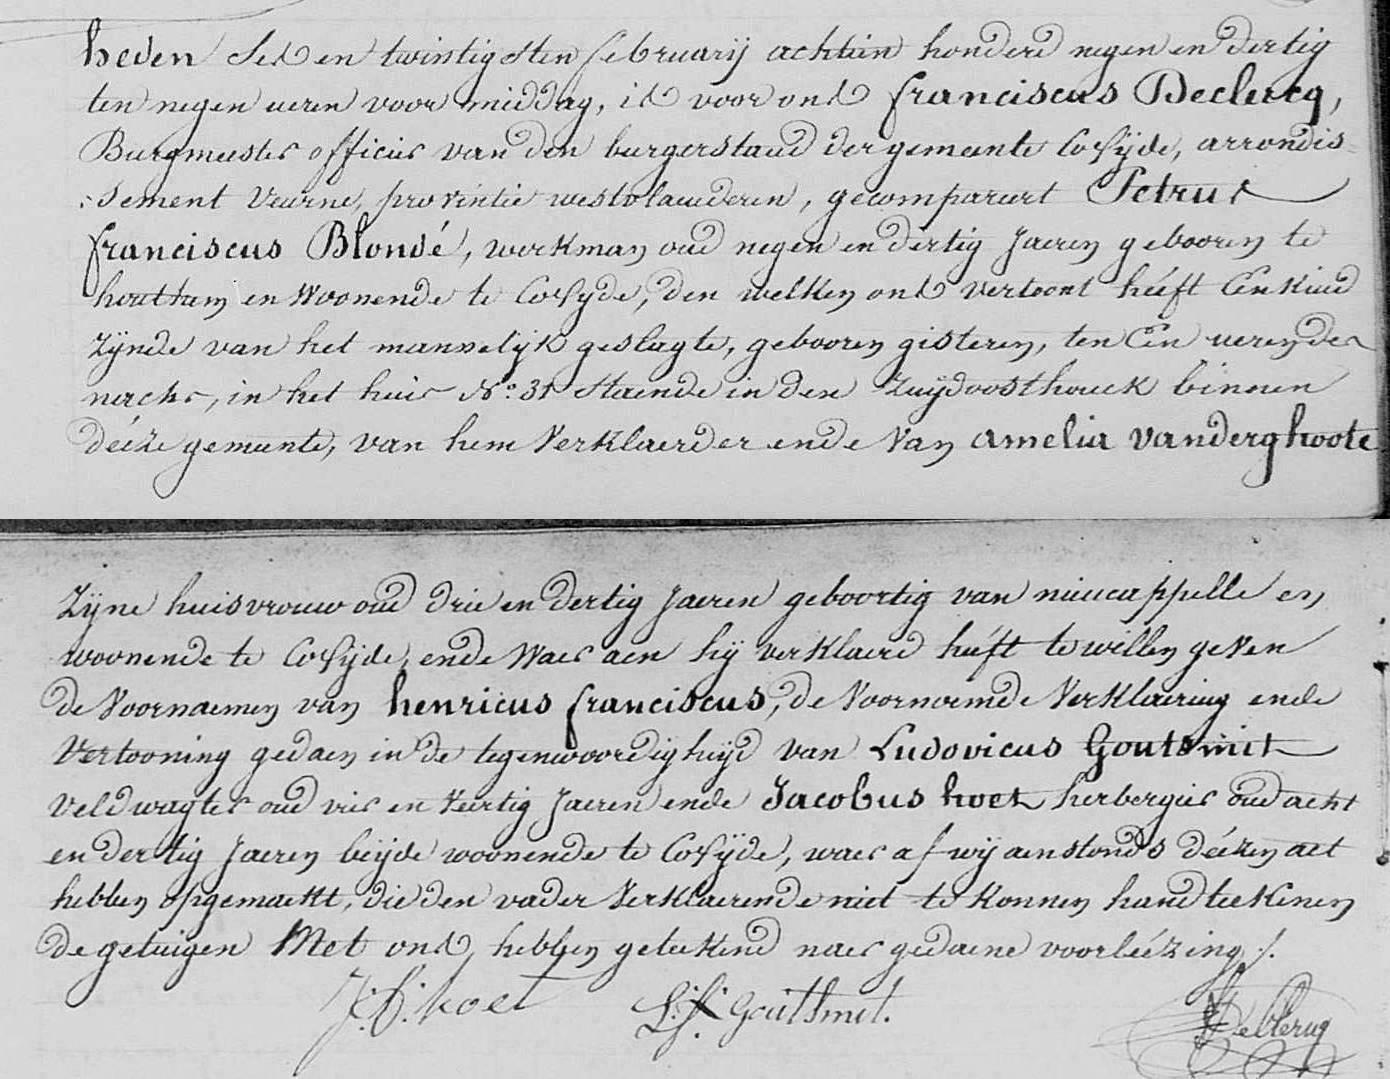 heden ses en twintigsten februarij achtien honderd negen en dertig
ten negen ueren voor middag, is voor ons franciscus Declercq,
Burgmeester officier van den burgerstand der gemeente Coxÿde, arrondis-
:sement veurne, provintie westvlaenderen, gecompareert Petrus
franciscus Blondé, werkman oud negen en dertig Jaeren gebooren te
houthem en Woonende te Coxÿde, den welken ons vertoont heéft Eén Kind
zÿnde van het mannelÿk geslagte, gebooren gisteren, ten Eén ueren des
nachs, in het huis No. 31 staende in den Zuÿdoosthoeck binnen
déeze gemeente, van hem Verklaerder ende Van amelia vanderghoote
Zÿne huisvrouw oud drie en dertig Jaeren geboortig van nieucappelle en
woonende te Coxÿde, ende Waer aen hÿ verklaerd heéft te willen geven
de Voornaemen van henricus franciscus, de Voornoemde Verklaering ende
Vertooning gedaen in de tegenwoordigheÿd van Ludovicus Goutsmit
veldwagter oud vier en Veertig Jaeren ende Jacobus hoet herbergier oud acht
en dertig Jaeren beÿde woonende te Coxÿde, waer af wÿ aenstonds déezen act
hebben opgemaekt, die den vader Verklaerende niet te konnen handteekenen
de getuigen Met ons, hebben geteekend naer gedaene voorleézing ./.
J: B: hoet L: f: Goutsmit. Declercq